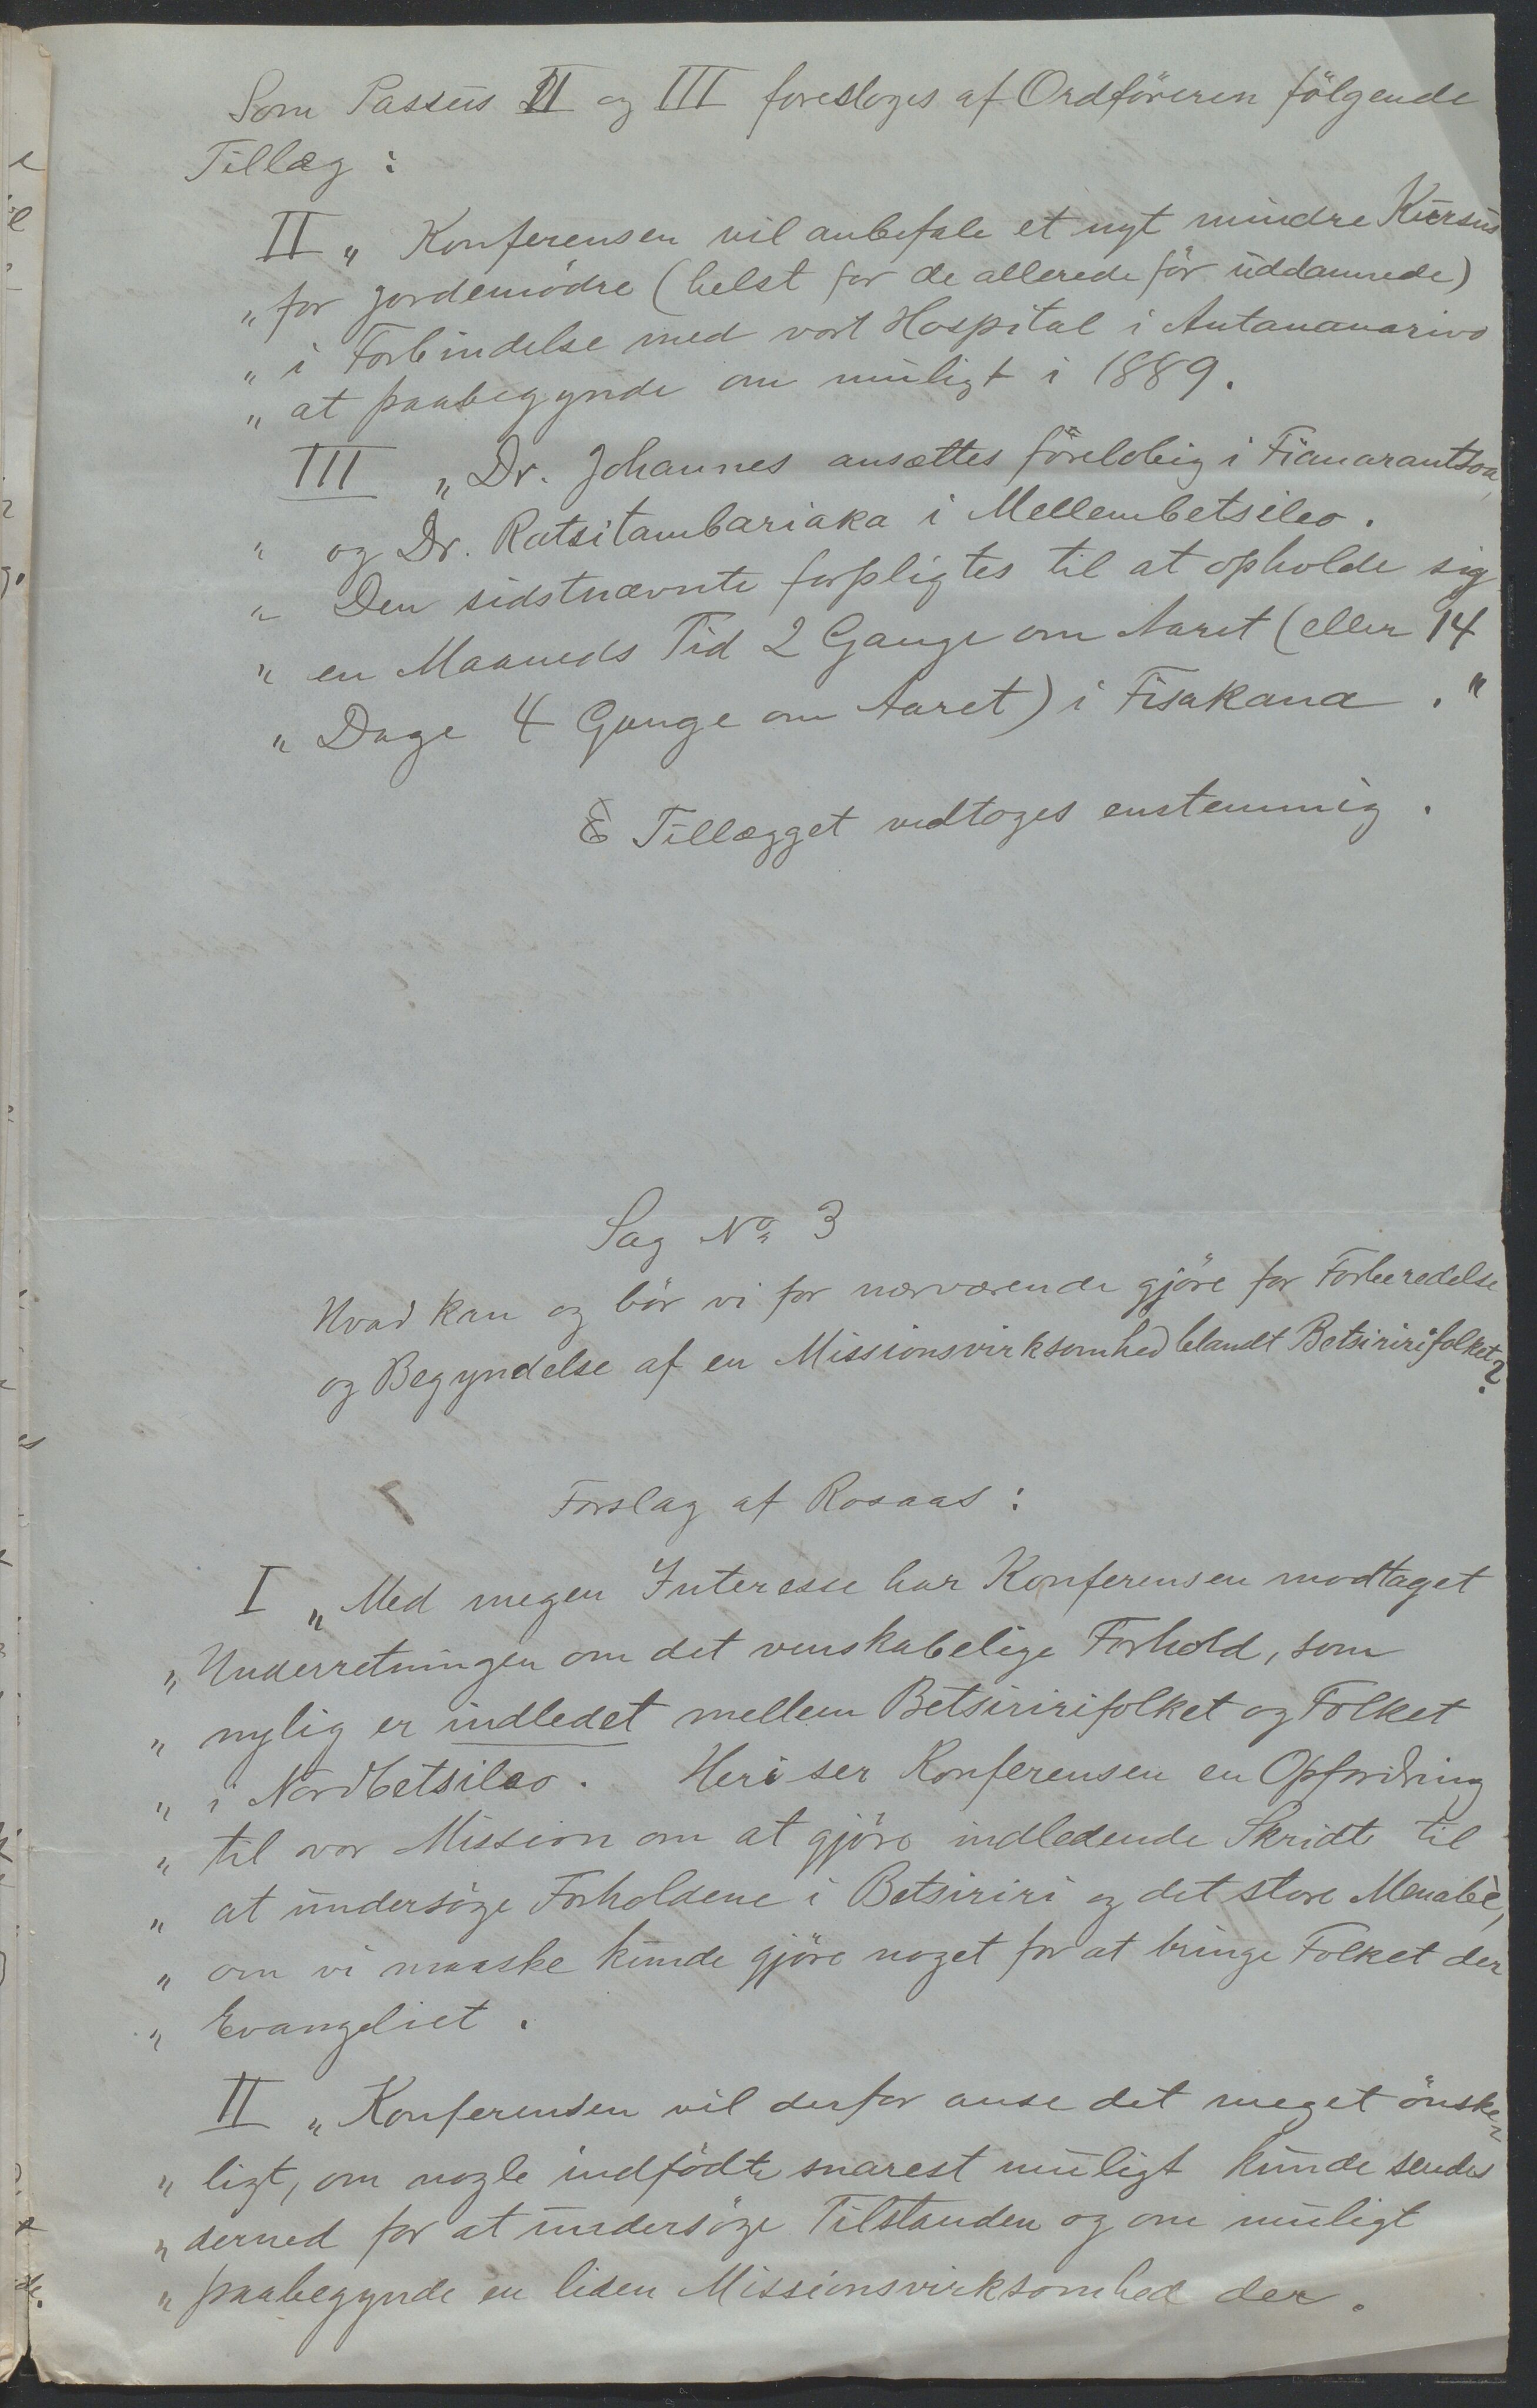 Som Passus II og III foresloges af Ordföreren fölgende
Tillæg :
II „ Konferensen vil anbefale et nyt mindre Kursus
„ for Jordemödre (helst for de allerede för uddannede)
„ i Forbindelse med vort Hospital i Antananarivo
„ at paabegynde om muligt i 1889.
III „ Dr. Johannes ansættes förelöbig i Fianarantsoa,
„ og Dr. Ratsitambariaka i Mellembetsileo.
„ Den sidstnævnte forpligtes til at opholde sig
„ en Maaneds Tid 2 Gange om Aaret (eller 14
„ Dage 4 Gange om Aaret) i Fisakana . "
Tillægget vedtoges enstemmig .
Sag No 3
Hvad kan og bör vi for nærværende gjöre for Forberedelse
og Begyndelse af en Missionsvirksomhed blandt Betsiririfolket?
Forslag af Rosaas :
I „ Med megen Interesse har Konferensen modtaget
„ Underretningen om det venskabelige Forhold, som
„ nylig er indledet mellem Betsiririfolket og Folket
„ i Nordbetsileo. Heri ser Konferensen en Opfordring
„ til vor Mission om at gjöre indledende Skridt til
„ at undersöge Forholdene i Betsiriri og det store Menabè,
„ om vi maaske kunde gjöre noget for at bringe Folket der
„ Evangeliet .
II „ Konferensen vil derfor anse det meget önske„
„ ligt, om nogle indfödte snarest muligt kunde sendes
„ derned for at undersöge Tilstanden og om muligt
„ paabegynde en liden Missionsvirksomhed der.